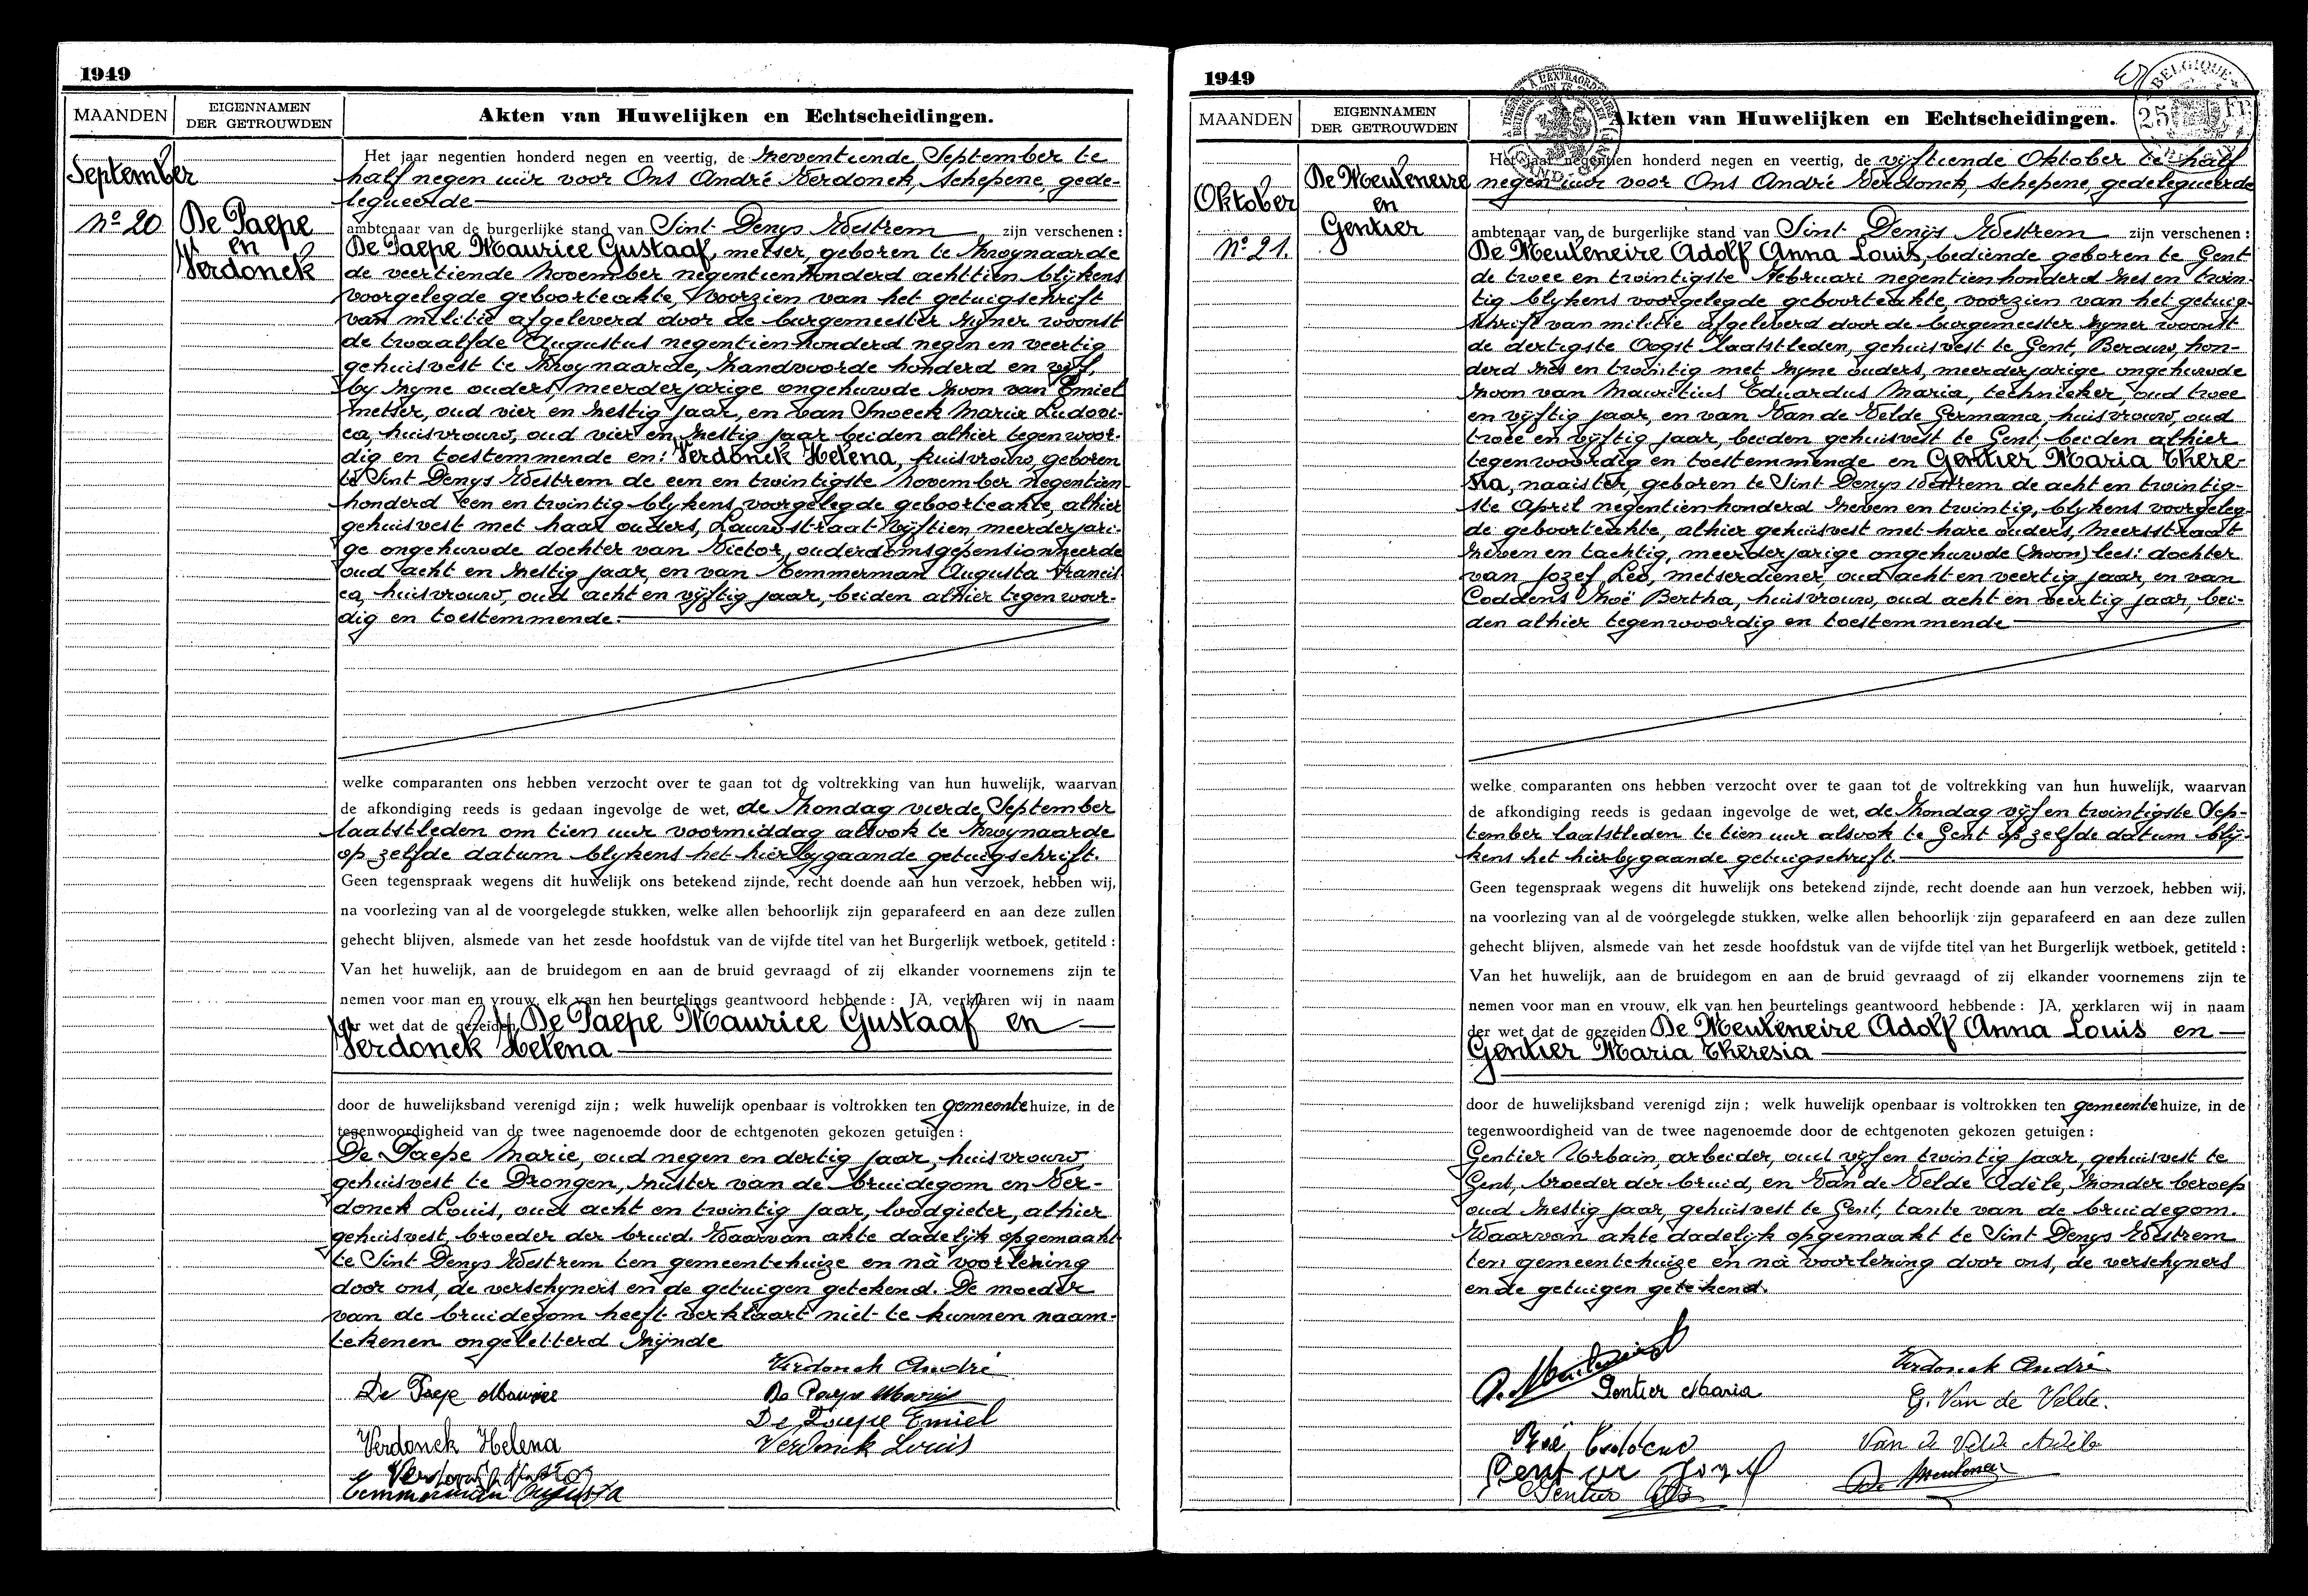 1949
MAANDEN
EIGENNAMEN
DER GETROUWDEN
Akten van Huwelijken en Echtscheidingen.
September
Nº 20
De Paepe
en
Verdonck
Het jaar negentien honderd negen en veertig, de zeventiende September te
half negen uur voor Ons André Verdonck, schepene, gede-
legueerde
ambtenaar van de burgerlijke stand van Sint Denys Westrem zijn verschenen :
De Paepe Maurice Gustaaf, metser, geboren te Zwynaarde
de veertiende November negentienhonderd achttien blijkens
voorgelegde geboorteakte, Voorzien van het getuigschrift
van militie afgeleverd door de burgemeester zyner woonst
de twaalfde Augustus negentienhonderd negen en veertig
gehuisvest te Zwynaarde, Zandvoorde honderd en vijf,
by zyne ouders, meerderjarige ongehuwde zoon van Emiel
metser, oud vier en zestig jaar, en van Snoeck Maria Ludovi-
ca, huisvrouw, oud vier en zestig jaar beiden alhier tegenwoor-
dig en toestemmende en: Verdonck Helena, huisvrouw, geboren
te Sint Denys Westrem de een en twintigste November negentien
honderd een en twintig blykens voorgelegde geboorteakte, alhier
gehuisvest met haar ouders, Laurestraat vijftien, meerderjari-
ge ongehuwde dochter van Victor, ouderdomsgepensionneerde
oud acht en zestig jaar, en van Temmerman Augusta Francis
ca, huisvrouw, oud acht en vyftig jaar, beiden alhier tegenwoor-
dig en toestemmende.
welke comparanten ons hebben verzocht over te gaan tot de voltrekking van hun huwelijk, waarvan
de afkondiging reeds is gedaan ingevolge de wet, de Zondag vierde September
laatstleden om tien uur voormiddag alsook te Zwynaarde
op zelfde datum blykens het hierbygaande getuigschrift.
Geen tegenspraak wegens dit huwelijk ons betekend zijnde, recht doende aan hun verzoek, hebben wij,
na voorlezing van al de voorgelegde stukken, welke allen behoorlijk zijn geparafeerd en aan deze zullen
gehecht blijven, alsmede van het zesde hoofdstuk van de vijfde titel van het Burgerlijk wetboek, getiteld :
Van het huwelijk, aan de bruidegom en aan de bruid gevraagd of zij elkander voornemens zijn te
nemen voor man en vrouw, elk van hen beurtelings geantwoord hebbende : JA, verklaren wij in naam
der wet dat de gezeiden De Paepe Maurice Gustaaf en
Verdonck Helena
door de huwelijksband verenigd zijn ; welk huwelijk openbaar is voltrokken ten gemeentehuize, in de
tegenwoordigheid van de twee nagenoemde door de echtgenoten gekozen getuigen :
De Paepe Marie, oud negen en dertig jaar, huisvrouw,
gehuisvest te Drongen, zuster van de bruidegom en Ver-
donck Louis, oud acht en twintig jaar, loodgieter, alhier
gehuisvest, broeder der bruid. Waarvan akte dadelijk opgemaakt
te Sint Denys Westrem ten gemeentehuize en nà voorlezing
door ons, de verschyners en de getuigen getekend. De moeder
van de bruidegom heeft verklaart niet te kunnen naam-
tekenen ongeletterd zijnde
Verdonck André
De Paepe Maurice
De Paepe Marie
De Paepe Emiel
Verdonck Helena
Verdonck Louis
Temmerman Augusta
1949
MAANDEN
EIGENNAMEN
DER GETROUWDEN
Akten van Huwelijken en Echtscheidingen.
BELGIQUE
25 FR
Oktober
Nº 21.
De Meuleneire
en
Gentier
Het jaar negentien honderd negen en veertig, de vijftiende Oktober te half
negen uur voor Ons André Verdonck, schepene, gedelegueerde
ambtenaar van de burgerlijke stand van Sint Denijs Westrem zijn verschenen :
De Meuleneire Adolf Anna Louis, bediende geboren te Gent
de twee en twintigste Februari negentienhonderd zes en twin-
tig blykens voorgelegde geboorteakte, voorzien van het getuig-
schrift van militie afgeleverd door de burgemeester zyner woonst
de dertigste Oogst laatstleden, gehuisvest te Gent, Berouw, hon-
derd zes en twintig met zyne ouders, meerderjarige ongehuwde
zoon van Mauritius Eduardus Maria, technieker, oud twee
en vyftig jaar, en van Van de Velde Germana, huisvrouw, oud
twee en vyftig jaar, beiden gehuisvest te Gent, beiden alhier
tegenwoordig en toestemmende en Gentier Maria There-
sia, naaister, geboren te Sint Denys Westrem de acht en twintig-
ste April negentienhonderd zeven en twintig, blykens voorgeleg-
de geboorteakte, alhier gehuisvest met hare ouders, Meersstraat
zeven en tachtig, meerderjarige ongehuwde (zoon) lees: dochter
van Jozef Leo, metserdiener, oud acht en veertig jaar, en van
Coddens Zoë Bertha, huisvrouw, oud acht en veertig jaar, bei-
den alhier tegenwoordig en toestemmende
welke comparanten ons hebben verzocht over te gaan tot de voltrekking van hun huwelijk, waarvan
de afkondiging reeds is gedaan ingevolge de wet, de Zondag vijf en twintigste Sep-
tember laatstleden te tien uur alsook te Gent op zelfde datum blij-
kens het hierbygaande getuigschrift.
Geen tegenspraak wegens dit huwelijk ons betekend zijnde, recht doende aan hun verzoek, hebben wij,
na voorlezing van al de voorgelegde stukken, welke allen behoorlijk zijn geparafeerd en aan deze zullen
gehecht blijven, alsmede van het zesde hoofdstuk van de vijfde titel van het Burgerlijk wetboek, getiteld :
Van het huwelijk, aan de bruidegom en aan de bruid gevraagd of zij elkander voornemens zijn te
nemen voor man en vrouw, elk van hen beurtelings geantwoord hebbende : JA, verklaren wij in naam
der wet dat de gezeiden De Meuleneire Adolf Anna Louis en
Gentier Maria Theresia
door de huwelijksband verenigd zijn ; welk huwelijk openbaar is voltrokken ten gemeentehuize, in de
tegenwoordigheid van de twee nagenoemde door de echtgenoten gekozen getuigen :
Gentier Urbain, arbeider, oud vijf en twintig jaar, gehuisvest te
Gent, broeder der bruid, en Van de Velde Adèle, zonder beroep
oud zestig jaar, gehuisvest te Gent, tante van de bruidegom.
Waarvan akte dadelijk opgemaakt te Sint Denys Westrem
ten gemeentehuize en nà voorlezing door ons, de verschyners
en de getuigen getekend.
Verdonck André
Gentier Maria
G. Van de Velde.
Zoë Coddens
Van de Velde Adèle
Gentier Jozef
Gentier